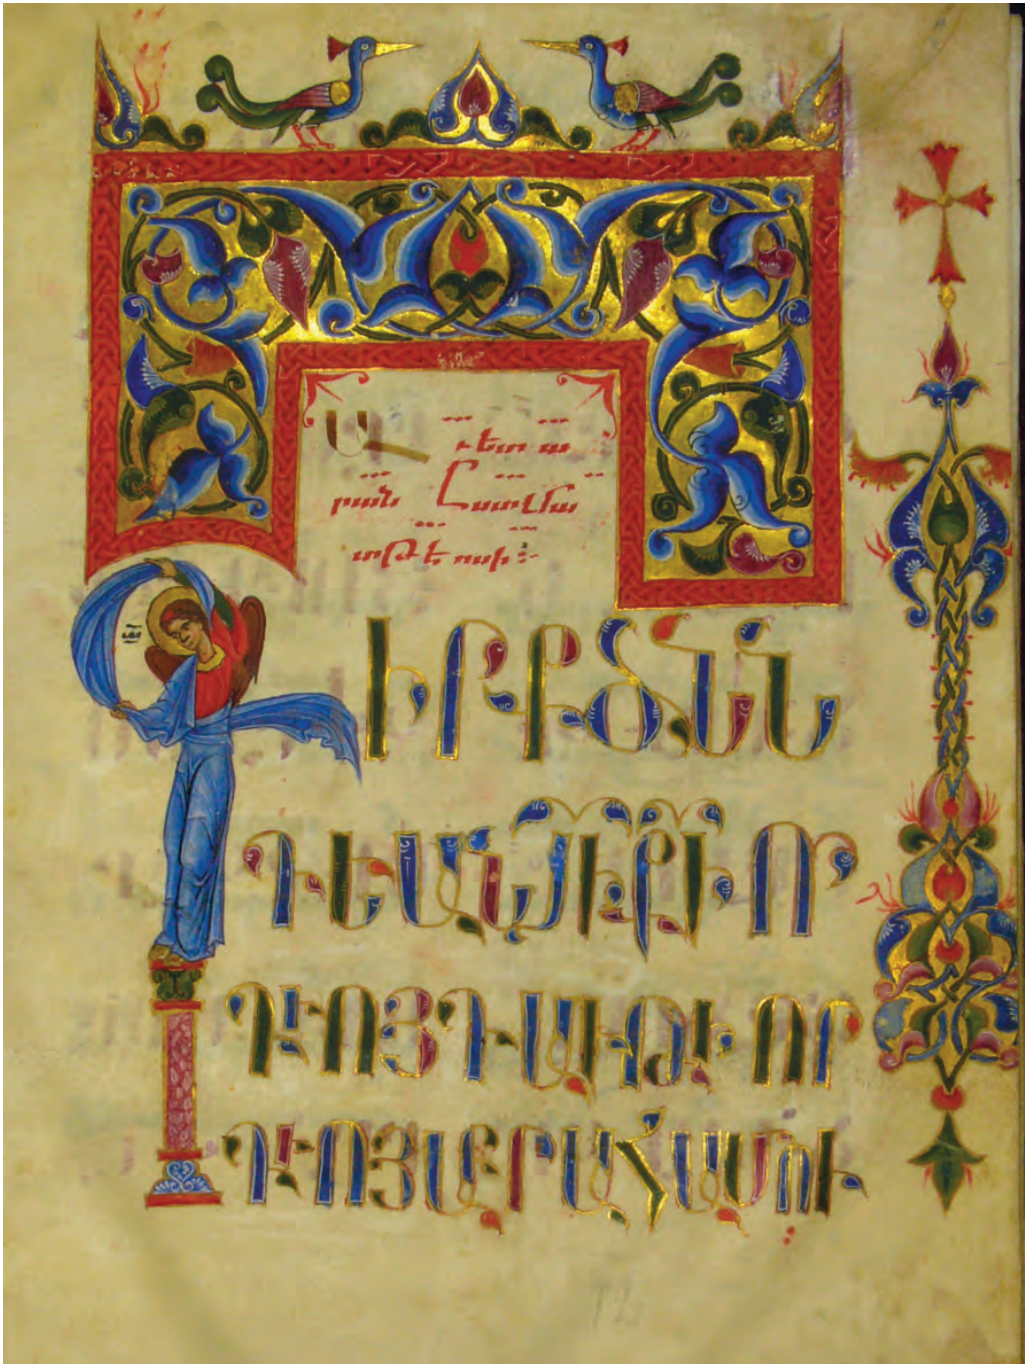 Աւետա
րան Ըստ Մա
տթէոսի:
ԳԻՐՔ ԾՆՆ
ԴԵԱՆ ՅԻ ՔԻ ՈՐ
ԴՒՈՅ ԴԱՒԹԻ ՈՐ
ԴՒՈՅ ԱԲՐԱՀԱՄՈՒ